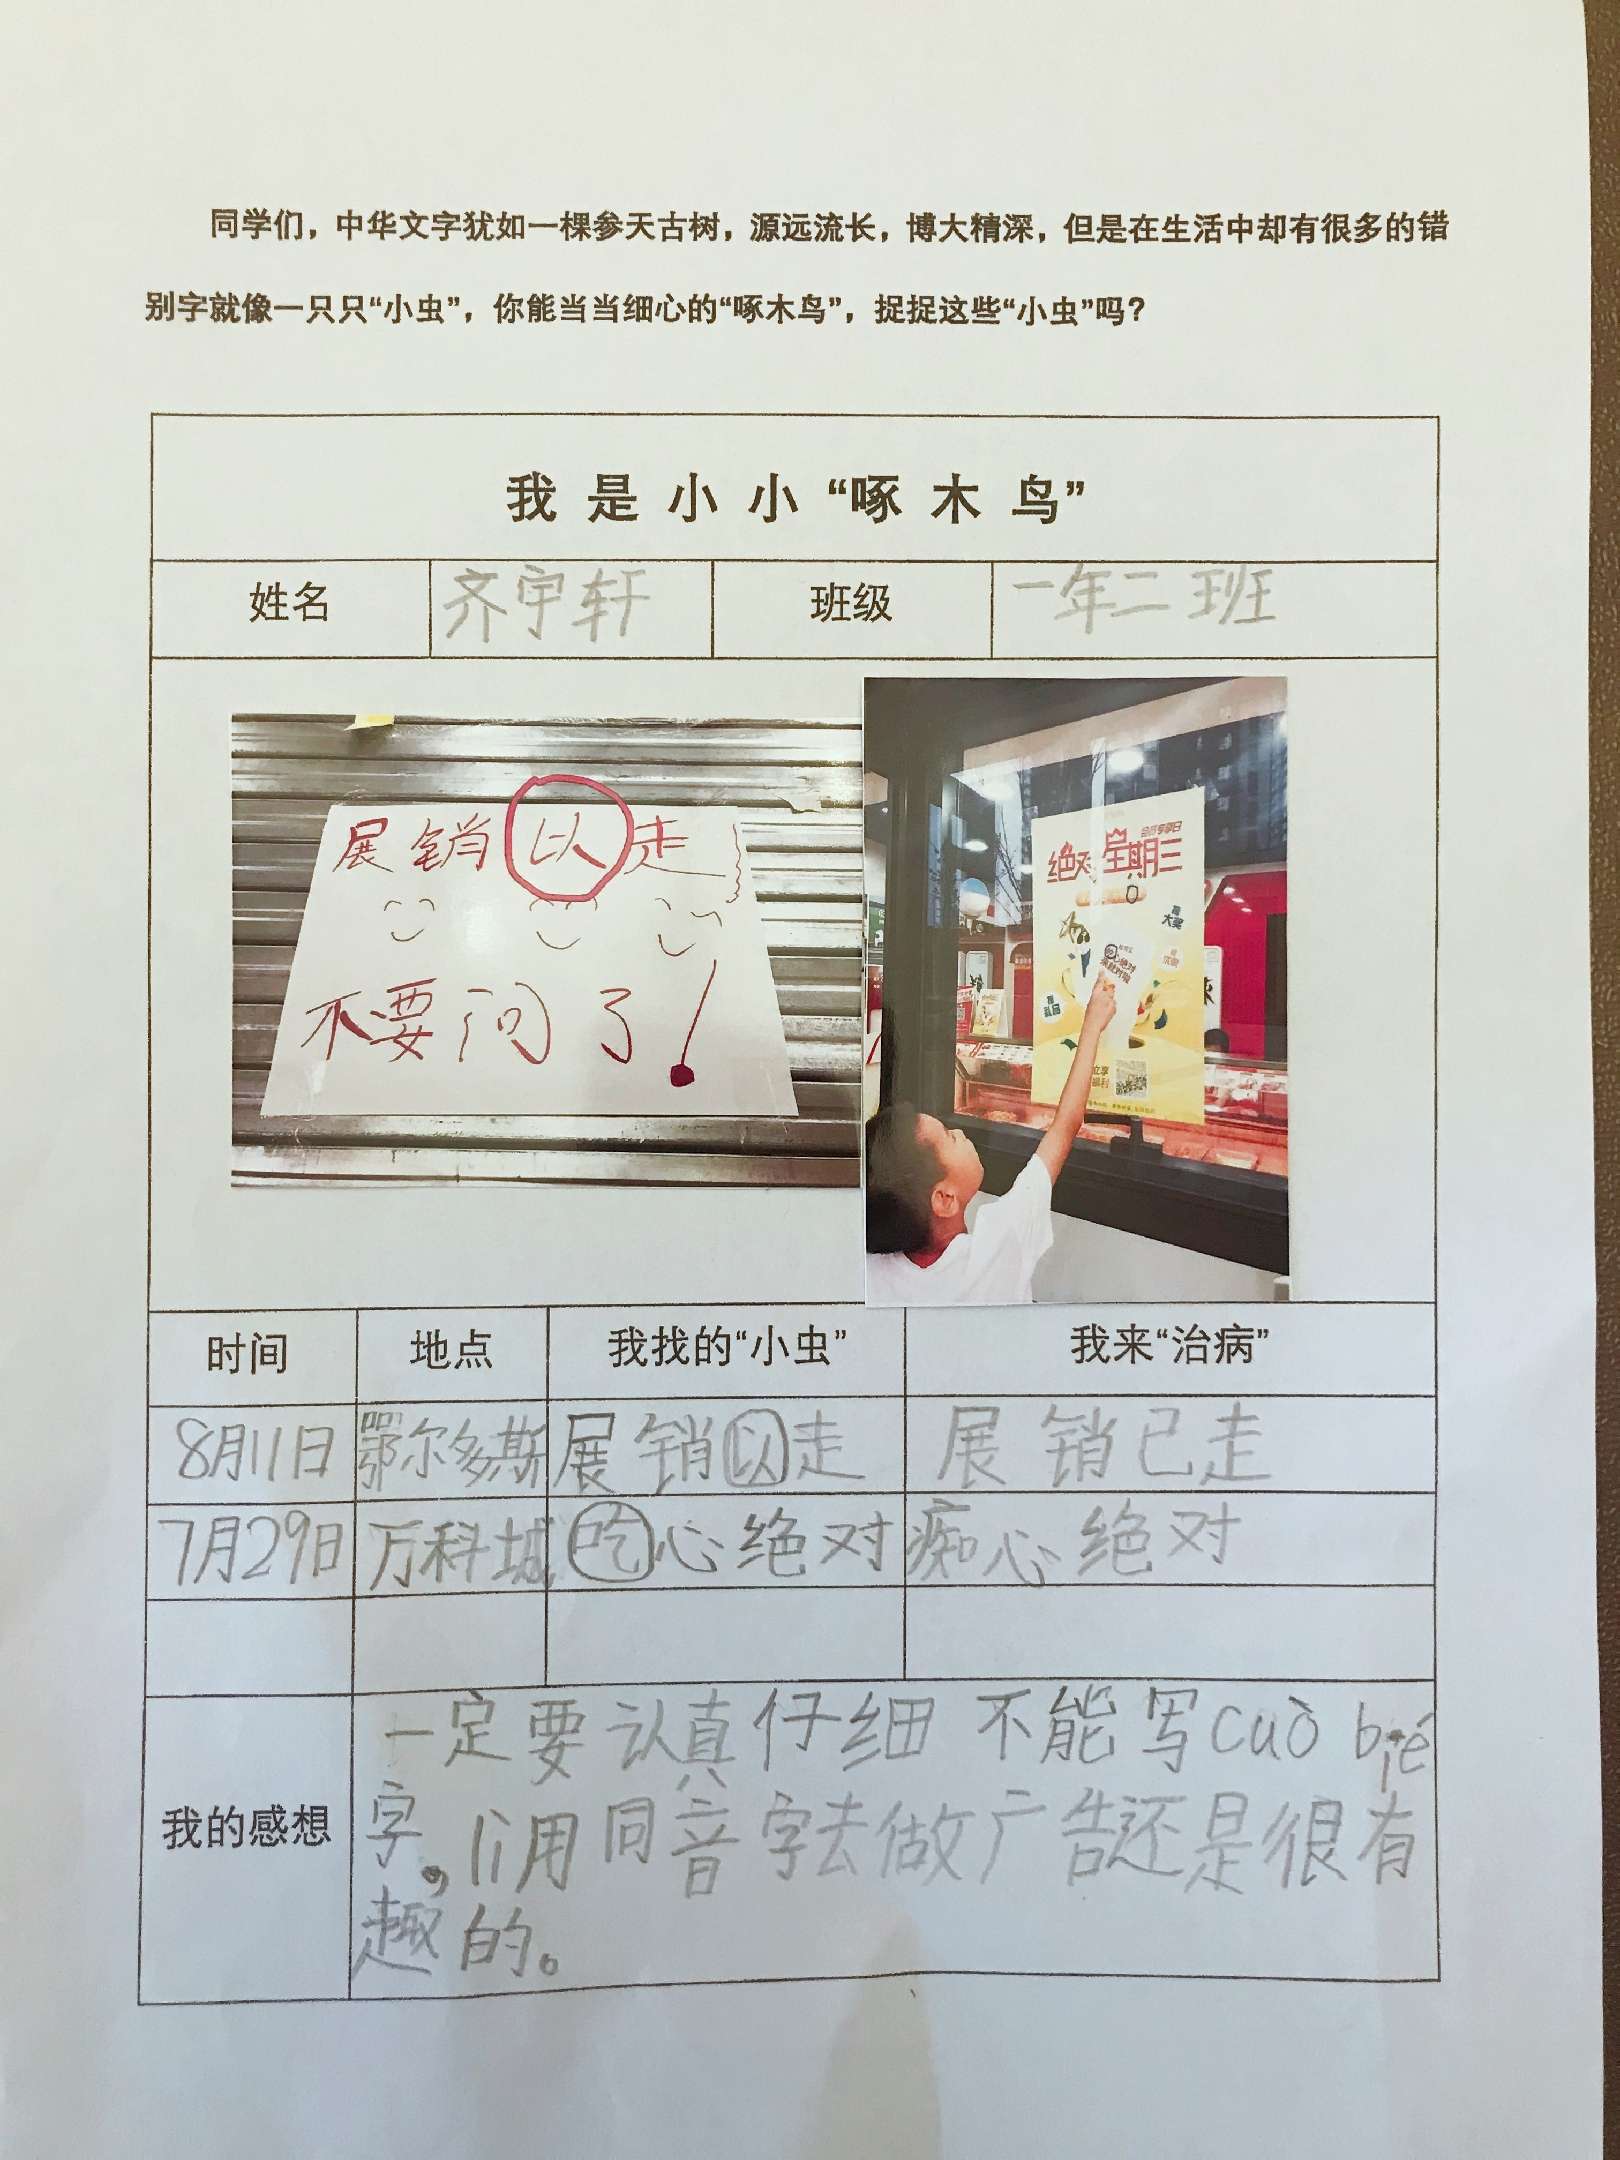 同学们，中华文字犹如一棵参天古树，源远流长，博大精深，但是在生活中却有很多的错
别字就像一只只“小虫”，你能当当细心的“啄木鸟”，捉捉这些“小虫”吗？
我是小小“啄木鸟”
姓名 齐宇轩 班级 一年二班
展销以走
不要问了！
会员专享日
绝对星期三
大奖
吃心绝对
立享
福利
时间 地点 我找的“小虫” 我来“治病”
8月11日 鄂尔多斯 展销以走 展销已走
7月29日 万科城 吃心绝对 痴心绝对
我的感想
一定要认真仔细 不能写cuò bié
字，li用同音字去做广告还是很有
趣的。